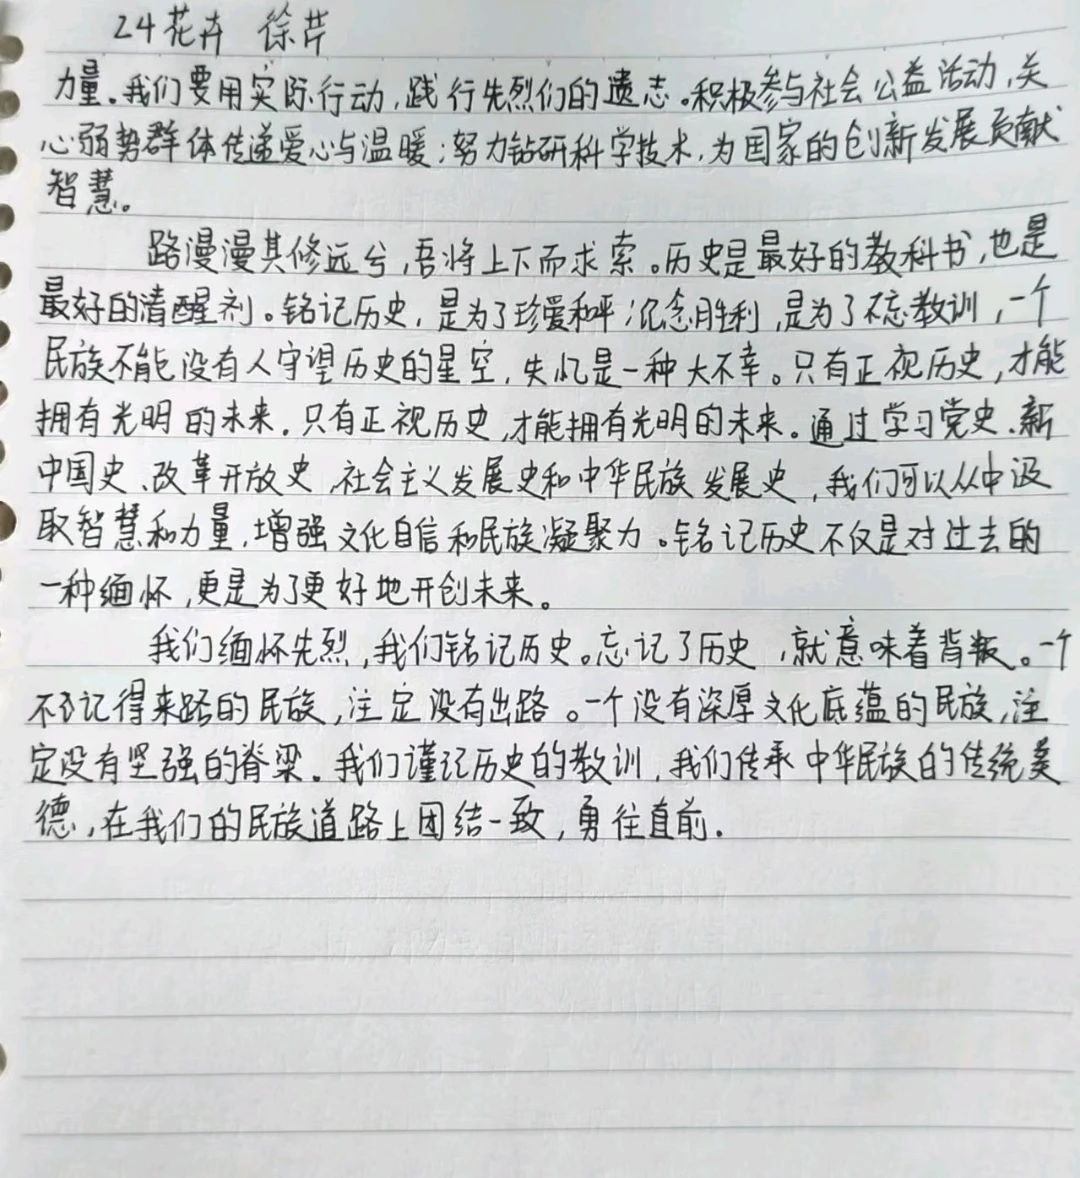 24花卉 徐芹
力量。我们要用实际行动,践行先烈们的遗志。积极参与社会公益活动,关
心弱势群体传递爱心与温暖;努力钻研科学技术,为国家的创新发展贡献
智慧。
路漫漫其修远兮,吾将上下而求索。历史是最好的教科书,也是
最好的清醒剂。铭记历史,是为了珍爱和平;纪念胜利,是为了不忘教训,一个
民族不能没有人守望历史的星空,失忆是一种大不幸。只有正视历史,才能
拥有光明的未来。只有正视历史,才能拥有光明的未来。通过学习党史、新
中国史、改革开放史、社会主义发展史和中华民族发展史,我们可以从中汲
取智慧和力量,增强文化自信和民族凝聚力。铭记历史不仅是对过去的
一种缅怀,更是为了更好地开创未来。
我们缅怀先烈,我们铭记历史。忘记了历史,就意味着背叛。一个
不记得来路的民族,注定没有出路。一个没有深厚文化底蕴的民族,注
定没有坚强的脊梁。我们谨记历史的教训,我们传承中华民族的传统美
德,在我们的民族道路上团结一致,勇往直前.